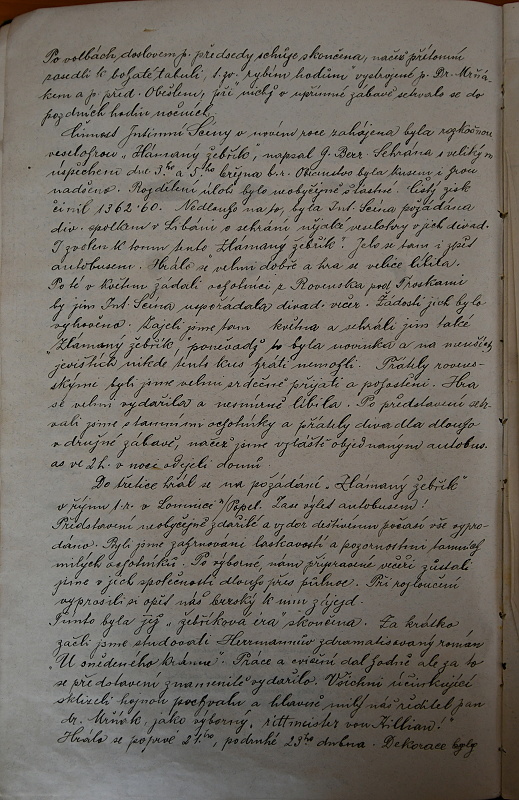 Po volbách, doslovem p. předsedy schůze skončena, načež přítomní
zasedli k bohaté tabuli, t. zv. rybím hodům vystrojené p. Dr. Mrňá-
kem a p. před. Obešlem, při nichž v upřímné zábavě setrvalo se do
pozdních hodin nočních.
Činnost Intimní Sceny v novém roce zahájena byla rozkošnou
veselohrou „Zlámaný žebřík", napsal G. Beer. Sehrána s velikým
úspěchem dne 3.ho a 5.ho března b.r. Obecenstvo bylo kusem i hrou
nadšeno. Rozdělení úloh bylo neobyčejně šťastné. Čistý zisk
činil 1362·60. Nedlouho na to, byla Int. Scéna požádána
div. spolkem v Libáni o sehrání nějaké veselohry v jich divad.
Zvolen k tomu tento „Zlámaný žebřík". Jelo se tam i zpět
autobusem. Hrálo se velmi dobře a hra se velice líbila.
Po té v květnu žádali ochotníci z Rovenska pod Troskami
by jim Int. Scéna uspořádala divad. večer. Žádosti jich bylo
vyhověno. Zajeli jsme tam května a sehráli jim také
„Zlámaný žebřík", poněvadž to byla novinka a na menších
jevištích nikde tento kus hráti nemohli. Přátely roven-
skými byli jsme velmi srdečně přijati a pohostěni. Hra
se velmi vydařila a nesmírně líbila. Po představení setr-
vali jsme s tamními ochotníky a přátely divadla dlouho
v družné zábavě, načež jsme zvláště objednaným autobus.
as ve 2h. v noci odejeli domů.
Do třetice hrál se na požádání „Zlámaný žebřík"
v říjnu t.r. v Lomnici n/Popel. Zase výlet autobusem!
Představení neobyčejně zdařilé a vzdor deštivému počasí vše vypro-
dáno. Byli jsme zahrnováni laskavostí a pozorností tamních
milých ochotníků. Po výborné, nám připravené večeři zůstali
jsme v jich společnosti dlouho přes půlnoc. Při rozloučení
vyprosili si opět náš brzský k nim zájezd.
Tímto byla již „žebříková éra" skončena. Za krátko
začli jsme studovati Herrmannův zdramatisovaný román
„U snědeného krámu". Práce a cvičení dal hodně ale za to
se představení znamenitě vydařilo. Všichni účinkující
sklízeli hojnou pochvalu a hlavně milý náš ředitel pan
dr. Mrňák, jako výborný „rittmeister von Killian!"
Hrálo se poprvé 21.ho, podruhé 23ho dubna. Dekorace byly